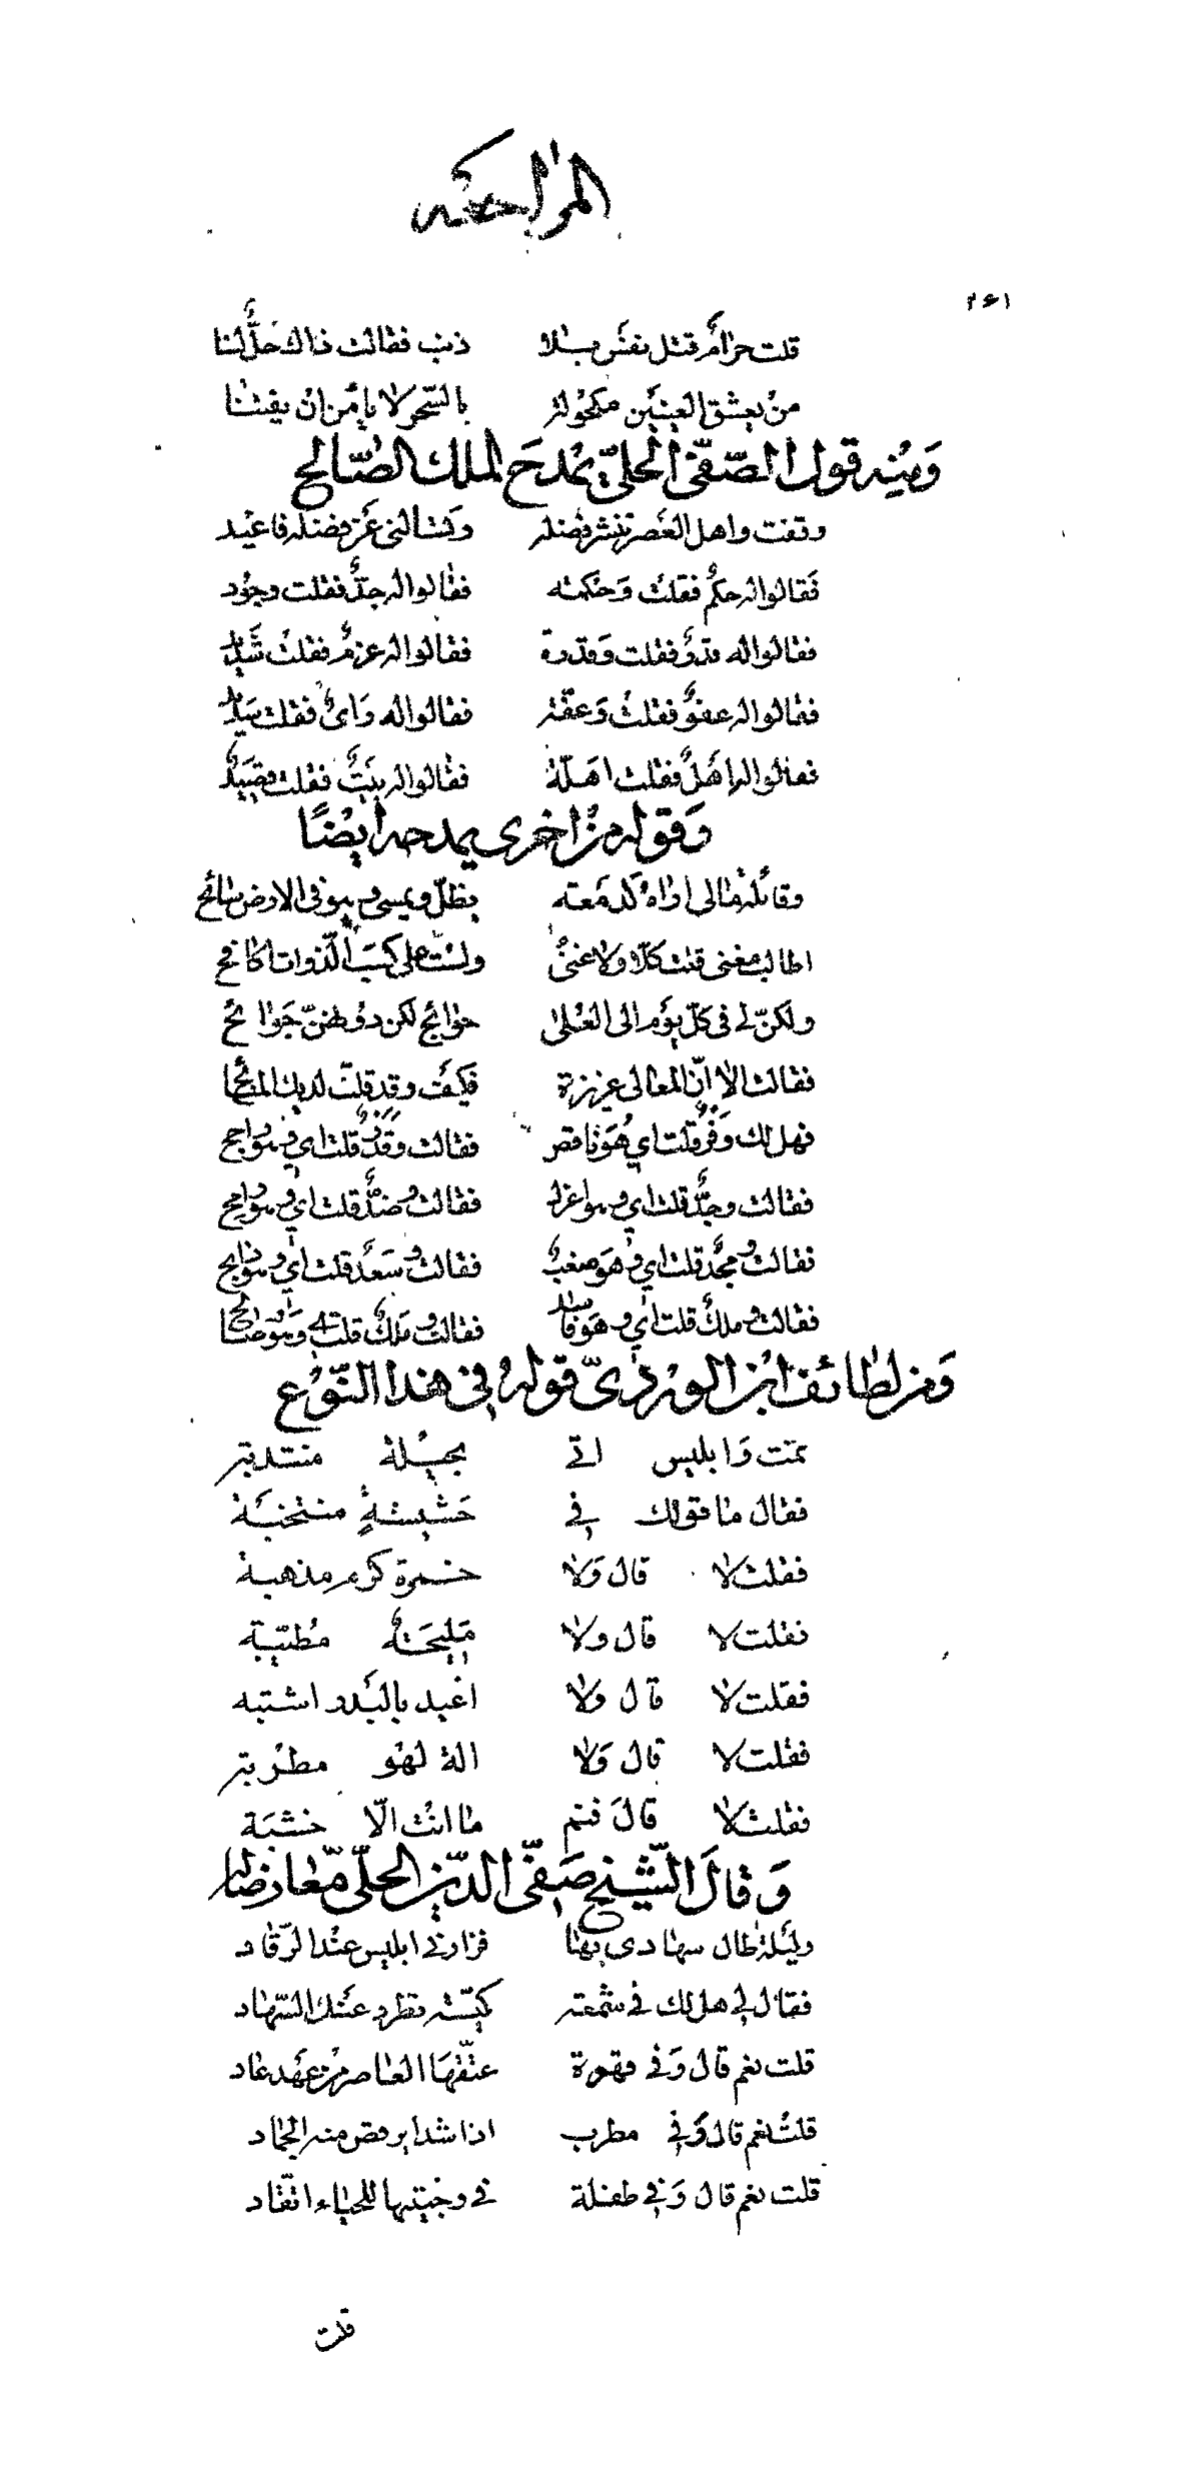 المراجعه
٢٤١
قلت حرامٌ قتل نفس بلا ذنب فقالت ذاك حلٌّ لنا
من يعشق العينين مكحولة بالسّحر لا يأمن ان يفتنا
وَمِنه قول الصّفيّ الحليّ يمْدحَ الملك الصّالح
وقفت واهل العصر تنشر فضله وتسالني عن فضله فاعيد
فقالوا له حكمٌ فقلت وَحكمته فقالوا له جدٌّ فقلت وجُود
فقالوا له قدرٌ فقلت وَقدرة فقالوا له عزمٌ فقلت شَديد
فقالوا له عفوٌ فقلت وَعفّة فقالوا له رَايٌ فقلت سَديد
فقالوا له اهَلٌ فقلت اهَلّة فقالوا له بيَتٌ فقلت قصَيد
وَقوله من اخرى يمدحه ايضًا
وقائلة مالى اراه كدمَعته يظلّ ويمسى وهو فى الارض سائح
اطالب مغنى قلت كلّا ولا غنىً ولست على كسَب الّذوات اكافح
ولكنّ لي فى كلّ يوَم الى العُلىٰ حوائج لكن دونهنّ جَوائح
فقالت الا انّ المعالى عزيزة فكيفَ وقد قلّت لديك المنائح
فهل لك وَفرٌ قلت اي وهُوَ ناقص فقالت وَقدرٌ قلت اي وهو راجح
فقالت وجدٌّ قلت اي وهو اعزل فقالت وضدٌّ قلت اي وهو رامح
فقالت ومجدٌ قلت اي وهَو صعبٌ فقالت وسَعدٌ قلت اي وهو ذابح
فقالت وملكٌ قلت اي وهَو فاسد فقالت ومَلكٌ قلت اي وَهو صالح
وَمن لطائف ابن الورديّ قوله في هذا النّوع
نمت وَابليس اتى بحيْلة منتدبة
فقال ما قولك في حَشيشةٍ منتخبَة
فقلت لا قال وَلا خمرة كرم مذهبة
فقلت لا قال ولا مَليحَةٌ مُطيّبة
فقلت لا قال ولا اغيد بالبَدر اشتبه
فقلت لا قال وَلا الة لهْو مطرْبة
فقلت لا قالَ فنم ما انت الّا خشبَة
وَقالَ الشّيخ صَفيّ الدّين الحلّي مّعارضاله
وليَلة طال سهادى بها فزارني ابليس عنْد الرّقاد
فقال لي هل لك في شمعة كبّسة تطرد عنَك السّهاد
قلت نعم قال وَفي قهوة عتّقهَا العاصر من عهَد عاد
قلت نعم قال وَفي مطرب اذا شدا يرقص منه الجماد
قلت نعم قال وَفي طفلة في وجنتيها للحياء اتّقاد
قلت